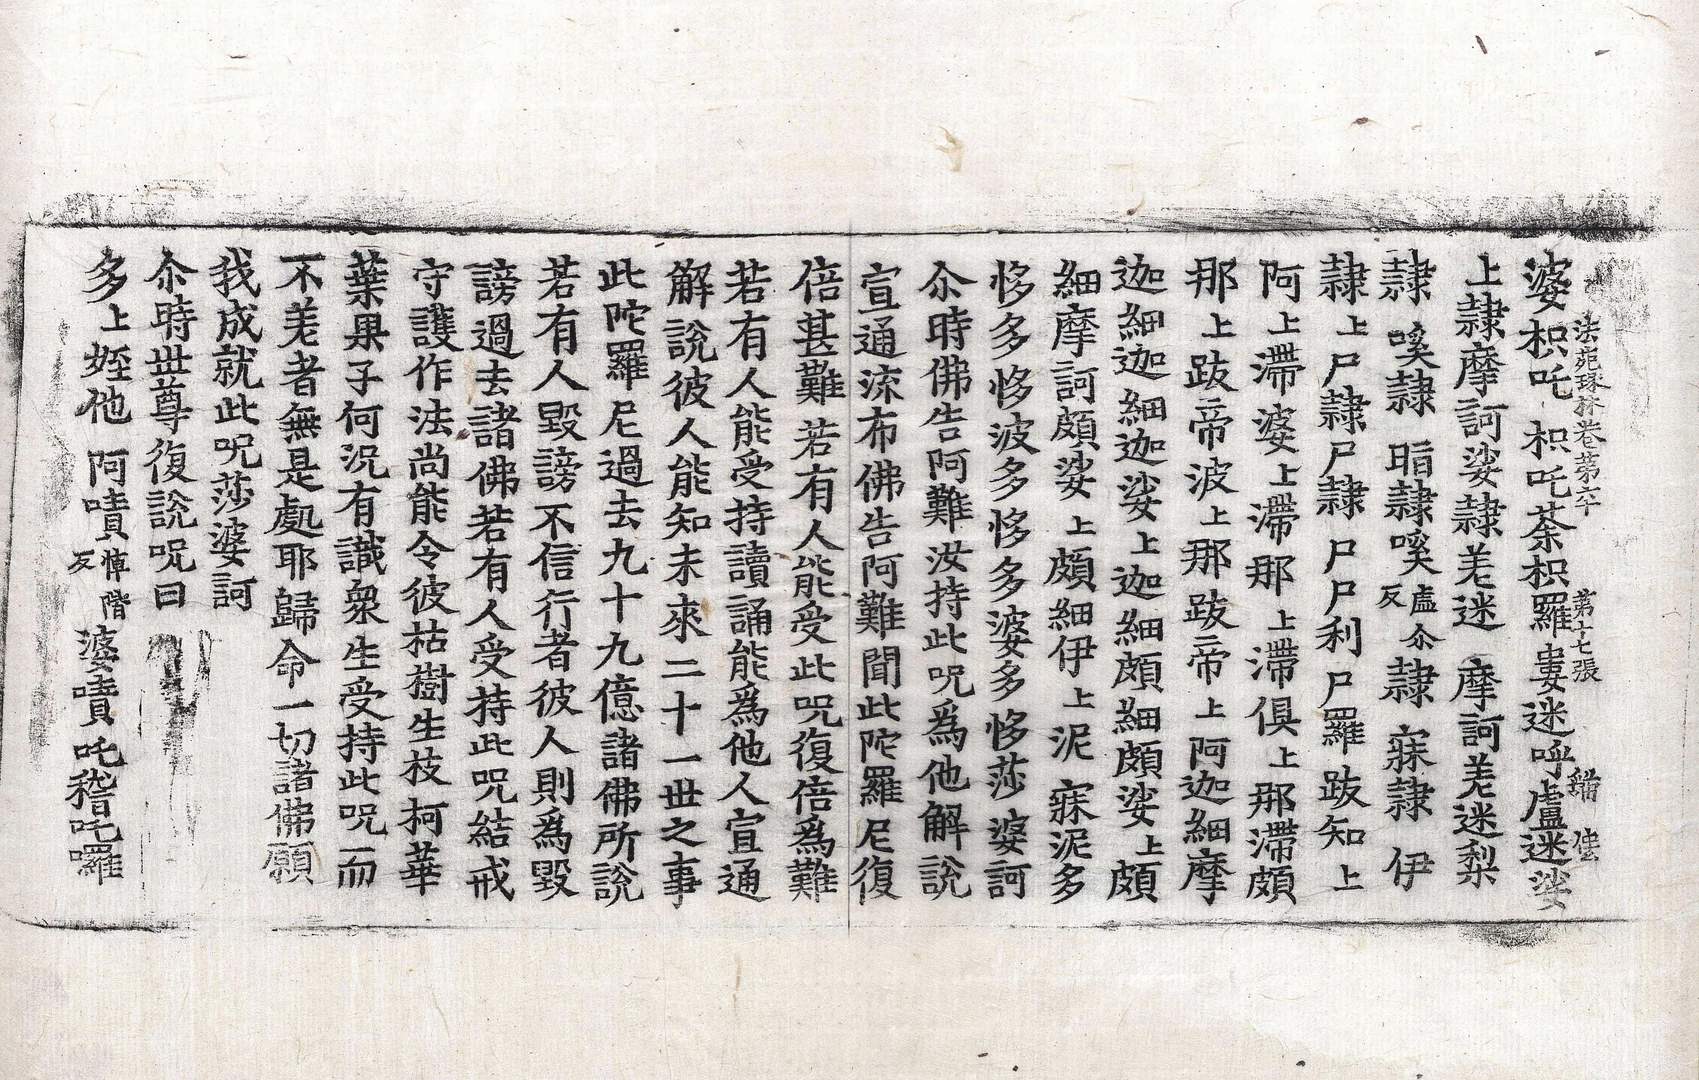 法苑珠林卷第六十 第十七張 緇 佳
婆枳吒 枳吒茶枳羅婁迷呼盧迷娑
上隸摩訶娑隸羌迷 摩訶羌迷梨
隸 嗘隸 𣆀隸隸嗘盧尒反隸 寐隸 伊
隸上尸隸尸隸 尸尸利尸羅 跋知上
阿上滯婆上滯那上滯俱上那滯頗
那上跋帝波上那跋帝上阿迦細摩
迦細迦細迦娑上迦細頗細頗娑上頗
細摩訶頗娑上頗細伊上泥 寐泥多
恀多恀波多恀多婆多恀莎婆訶
尒時佛告阿難汝持此呪為他解說
宣通流布佛告阿難聞此陀羅尼復
倍甚難若有人能受此呪復倍為難
若有人能受持讀誦能為他人宣通
解說彼人能知未來二十一世之事
此陀羅尼過去九十九億諸佛所說
若有人毀謗不信行者彼人則為毀
謗過去諸佛若有人受持此呪結戒
守護作法尚能令彼枯樹生枝柯華
葉果子何況有識衆生受持此呪而
不羌者無是處耶歸命一切諸佛願
我成就此呪莎婆訶
尒時世尊復說呪曰
多上姪他 阿嘖惮階反婆嘖吒𥡴吒囉